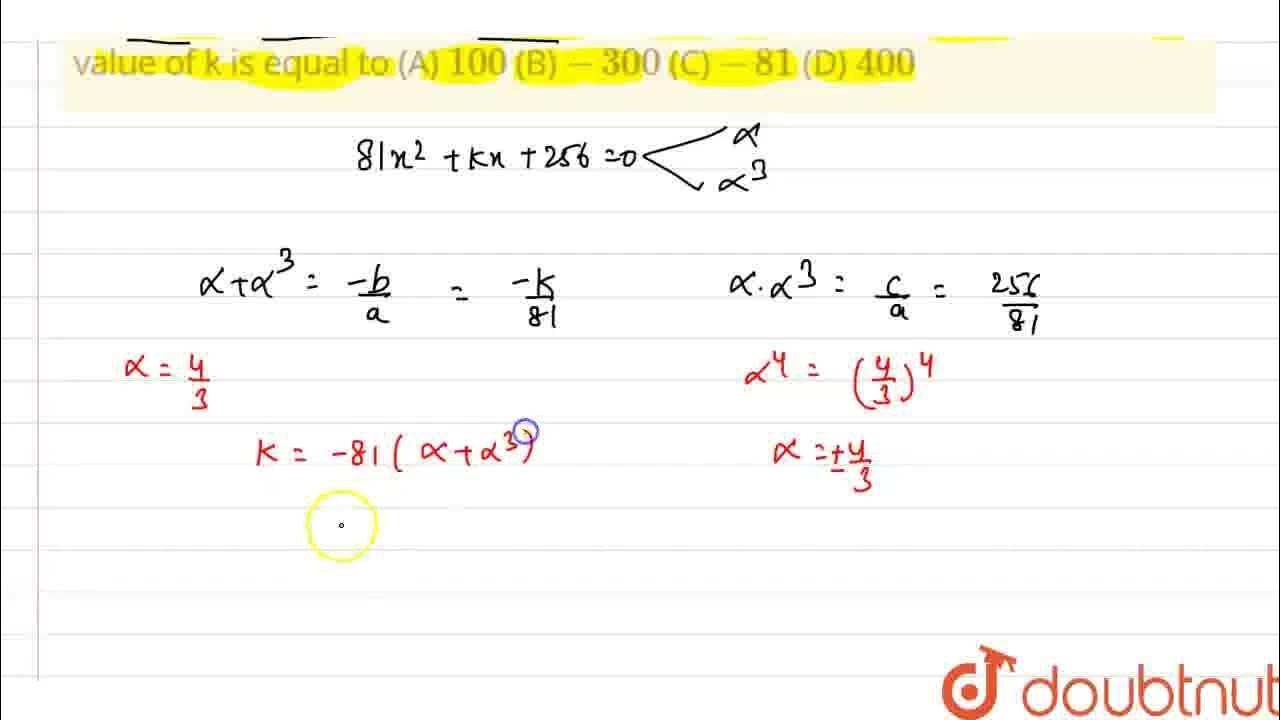 value of k is equal to (A) 100 (B) −300 (C) −81 (D) 400
81x² + kx + 256 = 0
α
α³
α + α³ = -b/a = -k/81
α · α³ = c/a = 256/81
α = 4/3
α⁴ = (4/3)⁴
k = -81 ( α + α³ )
α = ± 4/3
doubtnut